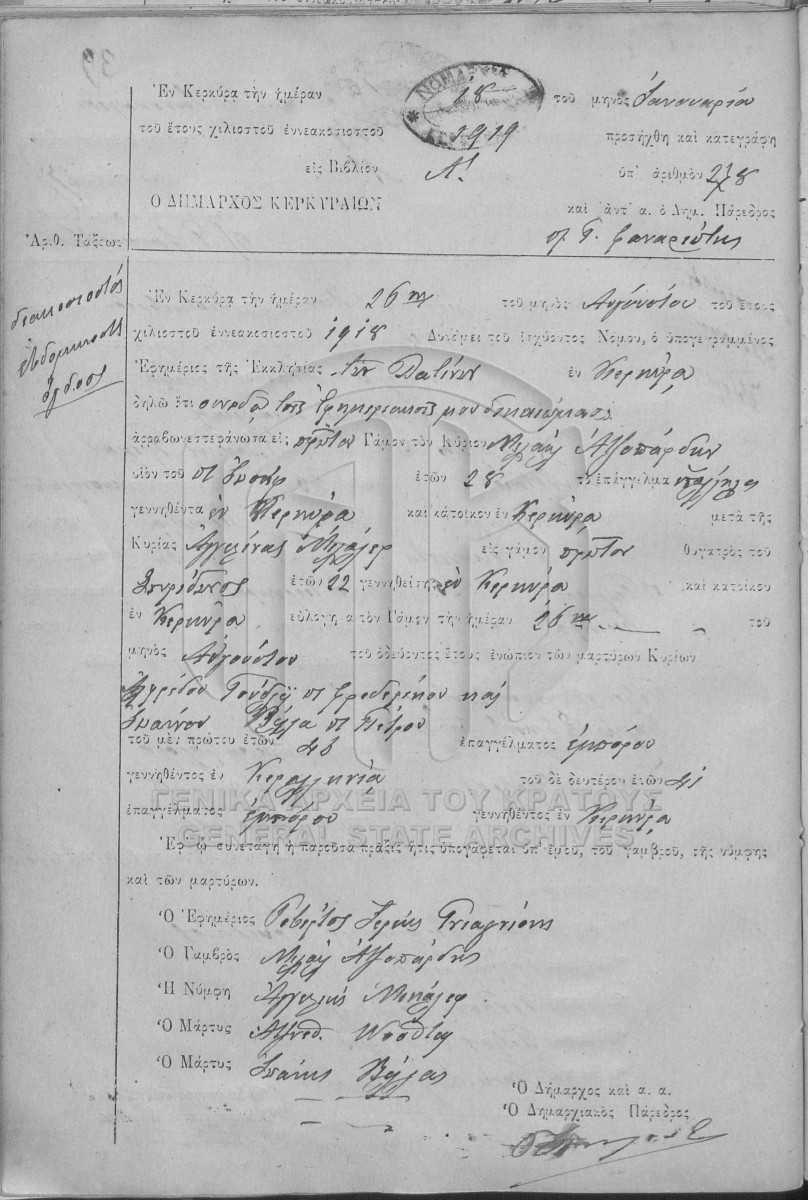 39
ΝΟΜΑΡΧΙΑ
Ἐν Κερκύρᾳ τὴν ἡμέραν 18 τοῦ μηνὸς Ἰανουαρίου
τοῦ ἔτους χιλιοστοῦ ἐννεακοσιοστοῦ 1919 προσήχθη καὶ κατεγράφη
εἰς Βιβλίον Α! ὑπ' ἀριθμὸν 278
Ο ΔΗΜΑΡΧΟΣ ΚΕΡΚΥΡΑΙΩΝ καὶ ἀντ' α. ὁ Δημ. Πάρεδρος
Ἀριθ. Τάξεως Γ. Φαναριώτης
διακοσιοστός
ἑβδομηκοστός
ὄγδοος
Ἐν Κερκύρᾳ τὴν ἡμέραν 26ην τοῦ μηνὸς Αὐγούστου τοῦ ἔτους
χιλιοστοῦ ἐννεακοσιοστοῦ 1918 Δυνάμει τοῦ ἰσχύοντος Νόμου, ὁ ὑπογεγραμμένος
Ἐφημέριος τῆς Ἐκκλησίας τῶν Λατίνων ἐν Κερκύρᾳ
δηλῶ ὅτι συνῳδὰ τοῖς ἐφημεριακοῖς μου δικαιώμασι
ἀρραβωνεστεφάνωσα εἰς πρῶτον Γάμον τὸν Κύριον Μιχαὴλ Ἀτζοπάρδην
υἱὸν τοῦ Ἰωσὴφ ἐτῶν 28 τὸ ἐπάγγελμα ὑπάλληλος
γεννηθέντα ἐν Κερκύρᾳ καὶ κάτοικον ἐν Κερκύρᾳ μετὰ τῆς
Κυρίας Ἀγγελίνας Μπάλεφ εἰς γάμον πρῶτον θυγατρὸς τοῦ
Σπυρίδωνος ἐτῶν 22 γεννηθείσης ἐν Κερκύρᾳ καὶ κατοίκου
ἐν Κερκύρᾳ εὐλόγησα τὸν Γάμον τὴν ἡμέραν 26ην τοῦ
μηνὸς Αὐγούστου τοῦ ὁδεύοντος ἔτους ἐνώπιον τῶν μαρτύρων Κυρίων
Ἀλφρέδου Γούδλεϋ Φρεδερίκου καὶ
Ἰωάννου Βέλλα Πέτρου
τοῦ μὲν πρώτου ἐτῶν 46 ἐπαγγέλματος ἐμπόρου
γεννηθέντος ἐν Κεφαλληνίᾳ τοῦ δὲ δευτέρου ἐτῶν 41
ΓΕΝΙΚΑ ΑΡΧΕΙΑ ΤΟΥ ΚΡΑΤΟΥΣ
ἐπαγγέλματος ἐμπόρου γεννηθέντος ἐν Κερκύρᾳ
GENERAL STATE ARCHIVES
Ἐφ' ᾧ συνετάγη ἡ παροῦσα πρᾶξις ἥτις ὑπογράφεται ὑπ' ἐμοῦ, τοῦ γαμβροῦ, τῆς νύμφης
καὶ τῶν μαρτύρων.
Ὁ Ἐφημέριος Ῥοβέρτος Ἱερεὺς
Ὁ Γαμβρὸς Μιχαὴλ Ἀτζοπάρδης
Ἡ Νύμφη Μπάλεφ
Ὁ Μάρτυς Alfred Woodley
Ὁ Μάρτυς Ἰωάννης Βέλλας
Ὁ Δήμαρχος καὶ α. α.
Ὁ Δημαρχιακὸς Πάρεδρος